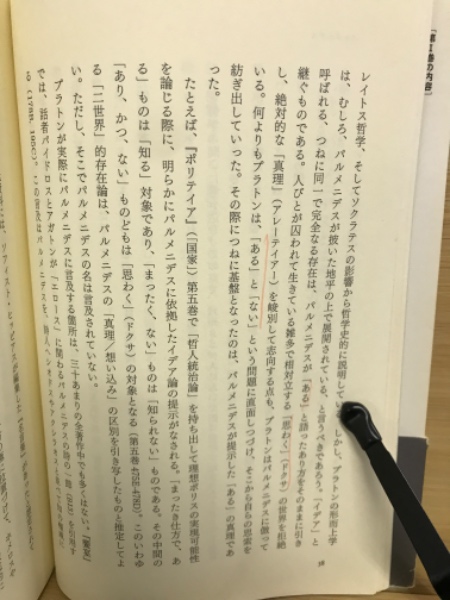 レイトス哲学、そしてソクラテスの影響から哲学史的に説明して
しかし、プラトンの形而上学
は、むしろ、パルメニデスが披いた地平の上で展開されている、と言うべきであろう。「イデア」と
呼ばれる、つねに同一で完全なる存在は、パルメニデスが「ある」と語ったあり方をそのままに引き
継ぐものである。人びとが囚われて生きている雑多で相対立する「思わく」(ドクサ)の世界を拒絶
し、絶対的な「真理」(アレーテイアー)を峻別して志向する点も、プラトンはパルメニデスに倣って
いる。何よりもプラトンは、「ある」と「ない」という問題に直面しつづけ、そこから自らの思索を
紡ぎ出していった。その際につねに基盤となったのは、パルメニデスが提示した「ある」の真理であ
った。
たとえば、『ポリテイア』(『国家』)第五巻で「哲人統治論」を持ち出して理想ポリスの実現可能性
を論じる際に、明らかにパルメニデスに依拠したイデア論の提示がなされる。「まったき仕方で、あ
る」ものは「知る」対象であり、「まったく、ない」ものは「知られない」ものである。その中間の
「あり、かつ、ない」ものどもは「思わく」(ドクサ)の対象となる(第五巻 475E-478D)。このいわゆ
る「二世界」的存在論は、パルメニデスの「真理/思い込み」の区別を引き写したものと推定してよ
い。ただし、そこでパルメニデスの名は言及されていない。
プラトンが実際にパルメニデスに言及する箇所は、三十あまりの全著作中でも多くはない。『饗宴』
では、話者パイドロスとアガトンが「エロース」に関わるパルメニデスの詩の一節
を引用す
る(178B, 195C)。この言及はパルメニデスを、詩人ヘシオドス
38
「第Ⅱ巻の内容」